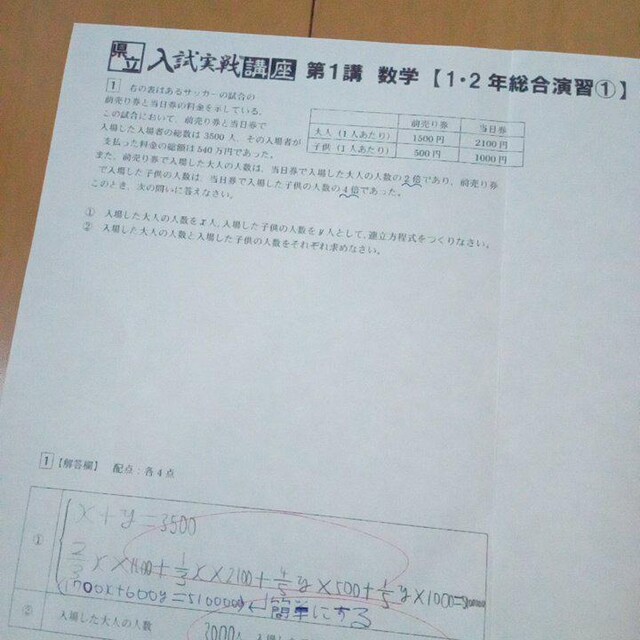 県立 入試実戦講座 第1講 数学【1・2年総合演習①】
1 右の表はあるサッカーの試合の
前売り券と当日券の料金を示している。
この試合において、前売り券と当日券で
入場した入場者の総数は3500人、その入場者が
支払った料金の総額は540万円であった。
前売り券 当日券
大人(1人あたり) 1500円 2100円
子供(1人あたり) 500円 1000円
また、前売り券で入場した大人の人数は、当日券で入場した大人の人数の2倍であり、前売り券
で入場した子供の人数は、当日券で入場した子供の人数の4倍であった。
このとき、次の問いに答えなさい。
① 入場した大人の人数をx人、入場した子供の人数をy人として、連立方程式をつくりなさい。
② 入場した大人の人数と入場した子供の人数をそれぞれ求めなさい。
1 【解答欄】 配点:各4点
①
x+y=3500
2/3x×1500+1/3x×2100+4/5y×500+1/5y×1000=
1700x+600y=5100000 ← 簡単にする
② 入場した大人の人数 3000人